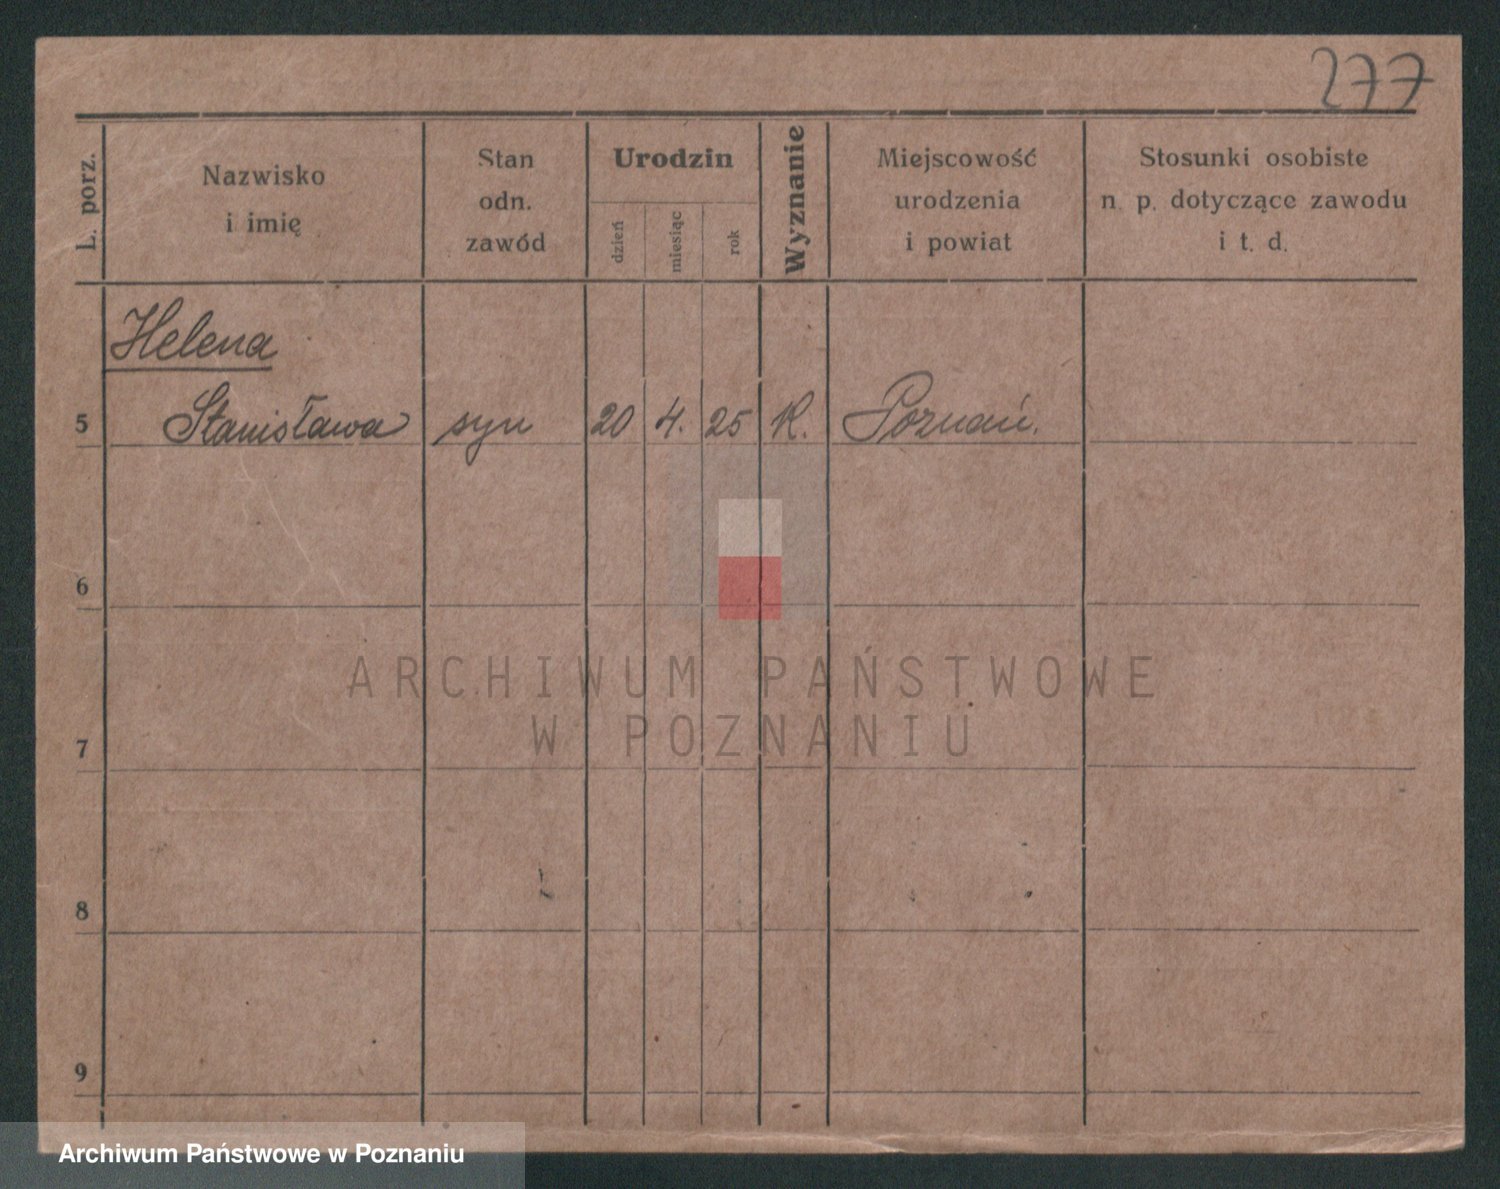 277
L. porz.
Nazwisko
i imię
Stan
odn.
zawód
Urodzin
dzień
miesiąc
rok
Wyznanie
Miejscowość
urodzenia
i powiat
Stosunki osobiste
n. p. dotyczące zawodu
i t. d.
Helena
5 Stanisława syn 20 4. 25 K. Poznań.
6
7
8
9
ARCHIWUM PAŃSTWOWE
W POZNANIU
Archiwum Państwowe w Poznaniu